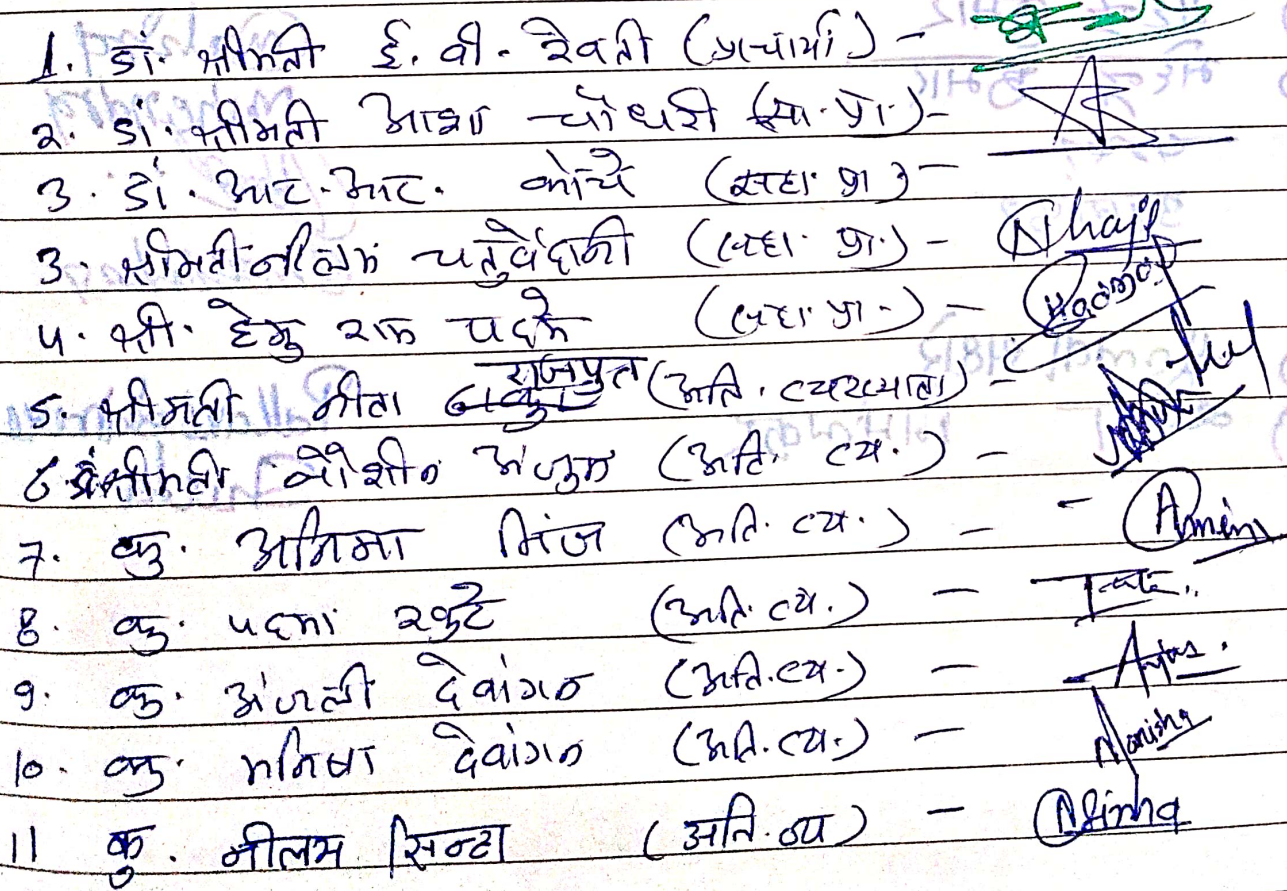 1. डॉ. श्रीमती ई. वी. रेवती (प्राचार्या) -
२. डॉ. श्रीमती आशा चौधरी (सा. प्रा.) -
3. डॉ. आर. आर. कोचे (सहा. प्रा) -
3. श्रीमती नीलम चतुर्वेदानी (सहा. प्रा.) -
4. श्री. हेमु राम पदमे (सहा प्रा.) -
5. श्रीमती नीता राजपुत (अति. व्याख्याता) -
6 श्रीमती नोशीन अंजुम (अति. व्य.) -
7. कु. अनिमा मिंज (अति. व्य.) - - Amin
8. कु. पदमा रकुटे (अति. व्य.) -
9. कु. अंजली देवांगन (अति. व्य.) -
10. कु. मनिषा देवांगन (अति. व्य.) - Manisha
11 कु. नीलम सिन्हा (अति. व्य) - NSinha